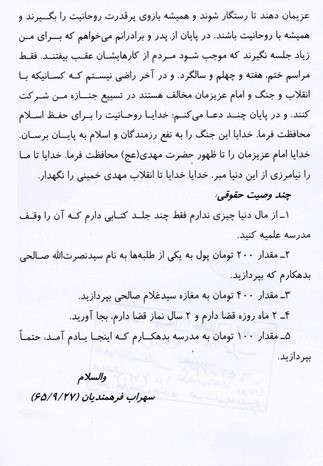 عزیمان دهند تا رستگار شوند و همیشه بازوی پرقدرت روحانیت را بگیرند و
همیشه با روحانیت باشند. در پایان از پدر و برادرانم می‌خواهم که برای من
زیاد جلسه نگیرند که موجب شود مردم از کارهایشان عقب بیفتند. فقط
مراسم ختم، هفته و چهلم و سالگرد. و در آخر راضی نیستم که کسانیکه با
انقلاب و جنگ و امام عزیزمان مخالف هستند در تسییع جنازه من شرکت
کنند. و در پایان چند دعا می‌کنم: خدایا روحانیت را برای حفظ اسلام
محافظت فرما. خدایا این جنگ را به نفع رزمندگان و اسلام به پایان برسان.
خدایا امام عزیزمان را تا ظهور حضرت مهدی(عج) محافظت فرما. خدایا تا ما
را نیامرزی از این دنیا مبر. خدایا خدایا تا انقلاب مهدی خمینی را نگهدار.
چند وصیت حقوقی:
۱ـ از مال دنیا چیزی ندارم فقط چند جلد کتابی دارم که آن را وقف
مدرسه علمیه کنید.
۲ـ مقدار ۲۰۰ تومان پول به یکی از طلبه‌ها به نام سیدنصرت‌الله صالحی
بدهکارم که بپردازید.
۳ـ مقدار ۴۰۰ تومان به مغازه سیدغلام صالحی بپردازید.
۴ـ ۲ ماه روزه قضا دارم و ۲ سال نماز قضا دارم، بجا آورید.
۵ـ مقدار ۱۰۰ تومان به مدرسه بدهکارم که اینجا یادم آمد، حتماً
بپردازید.
والسلام
سهراب فرهمندیان (۶۵/۹/۲۷)